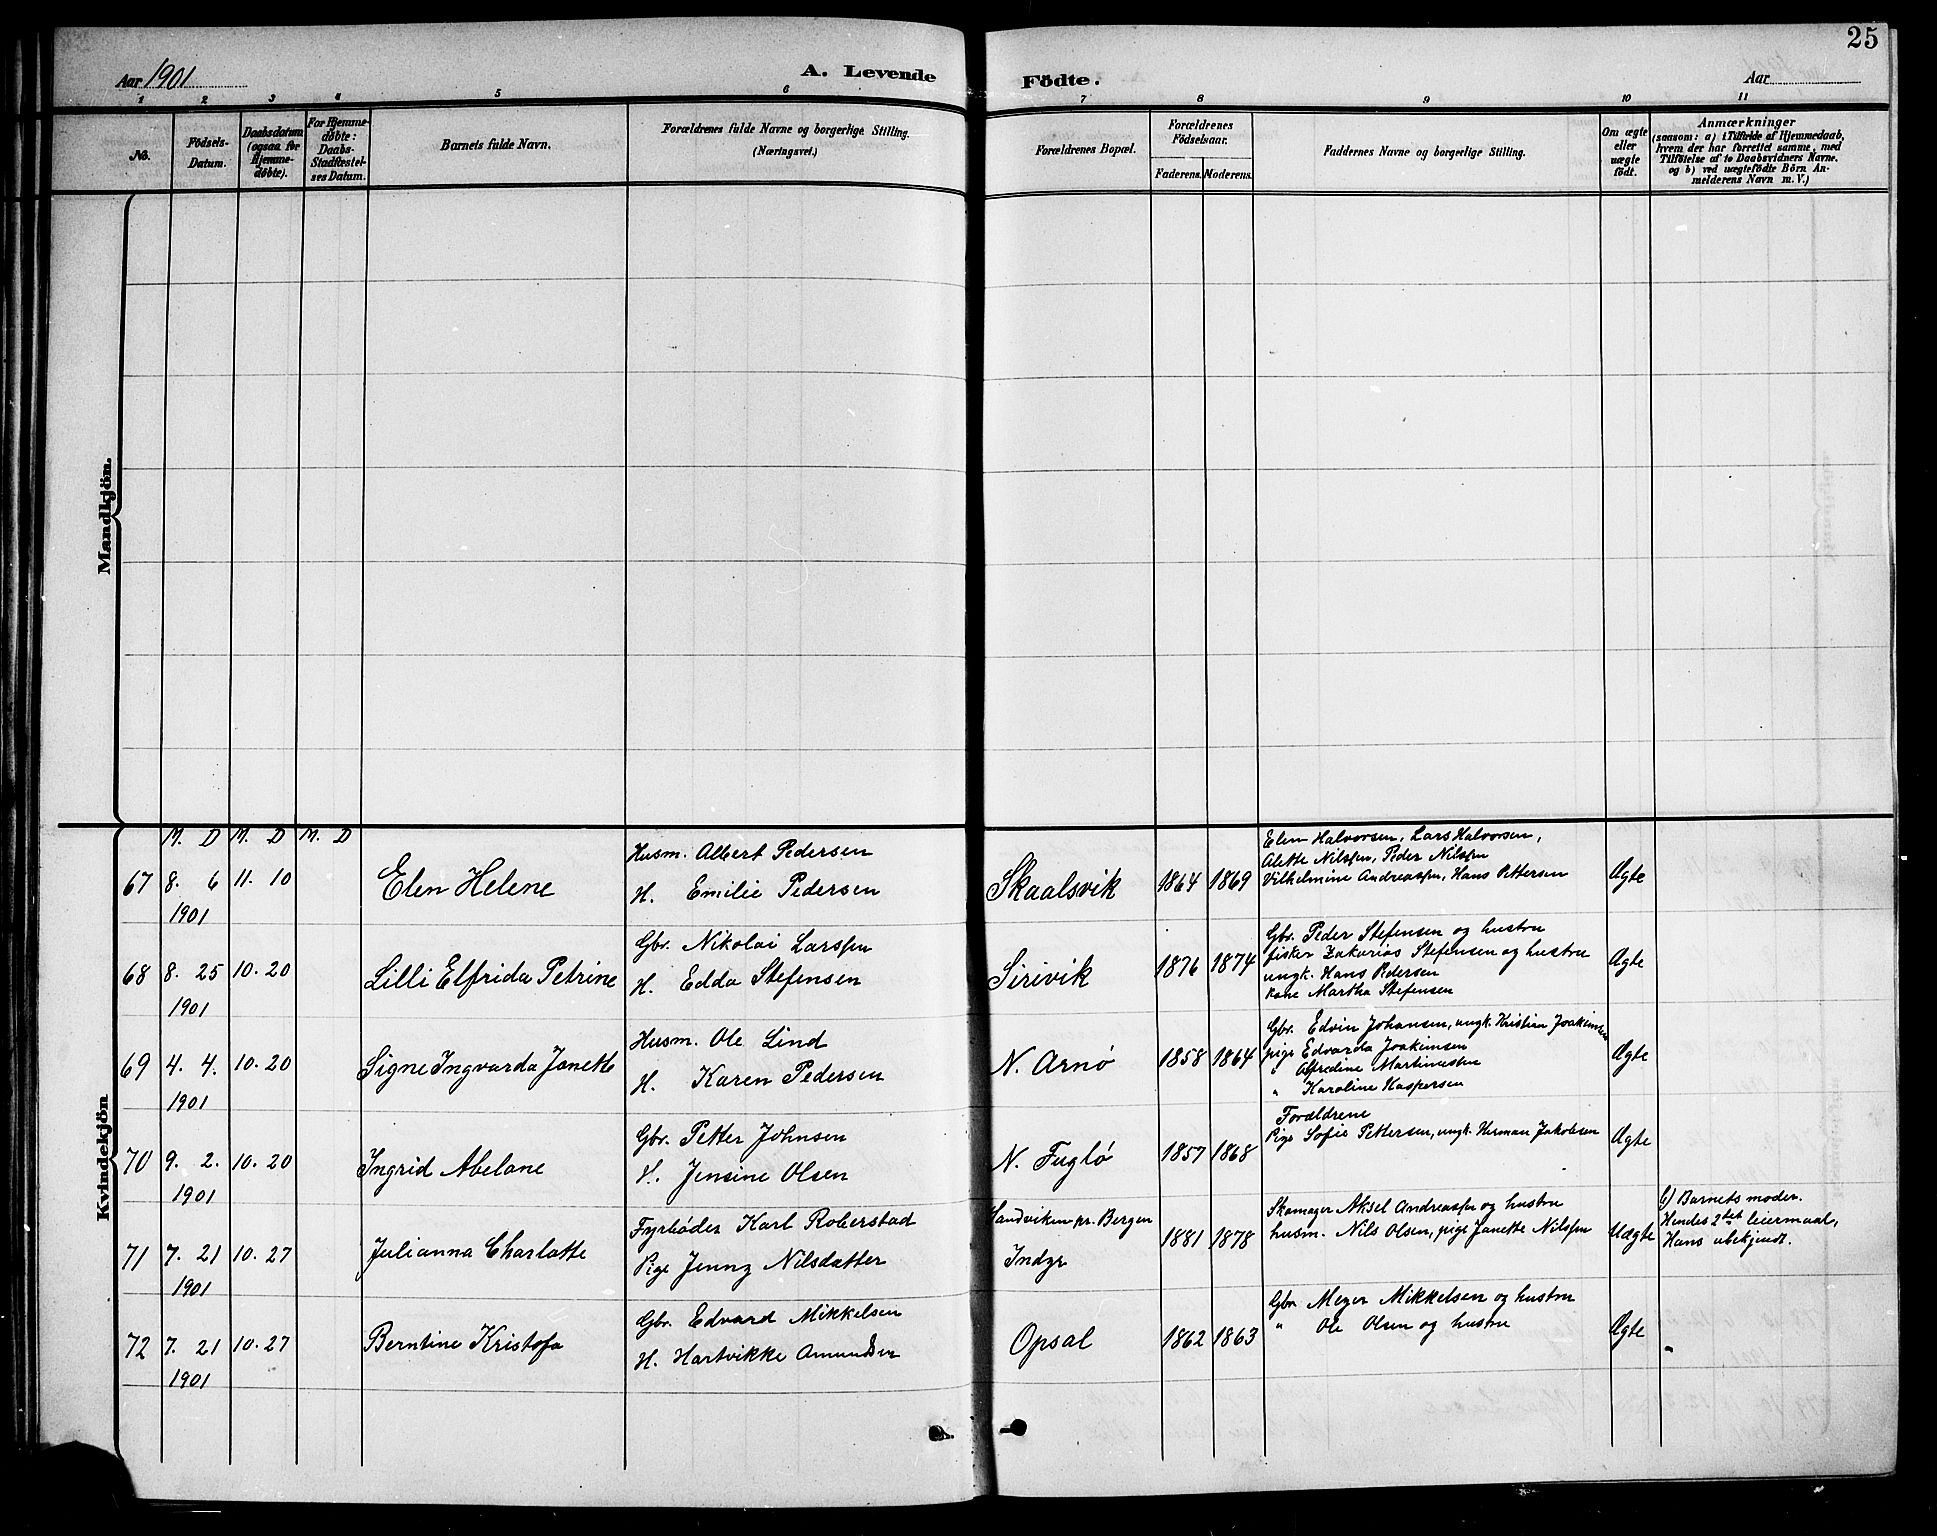 25
Aar 1901
A. Levende
Födte.
Aar
1 2 3 4 5 6 7 8 9 10 11
No.
Födsels-
Datum.
Daabsdatum
(ogsaa for
Hjemme-
døbte).
For Hjemme-
døbte:
Daabs-
Stadfæstel-
ses Datum.
Barnets fulde Navn.
Forældrenes fulde Navne og borgerlige Stilling.
(Næringsvei.)
Forældrenes Bopæl.
Forældrenes
Födselsaar.
Faderens.
Moderens.
Faddernes Navne og borgerlige Stilling.
Om ægte
eller
uægte
födt.
Anmærkninger
(saasom: a) i Tilfælde af Hjemmedaab,
hvem der har forrettet samme, med
Tilföielse af to Daabsvidners Navne.
og b) ved uægtefödte Börn An-
melderens Navn m. V.)
Mandkjön.
Kvindekjön
M. D M. D M. D
67 8. 6 11. 10
1901
Elen Helene
Husm. Albert Pedersen
H. Emilie Pedersen
Skaalsvik
1864 1869
Elen Halvorsen, Lars Halvorsen,
Alette Nilssen, Peder Nilssen
Vilhelmine Andreassen, Hans Pettersen
Ægte
68 8. 25 10. 20
1901
Lilli Elfrida Petrine
Gbr. Nikolai Larssen
H. Edda Stefensen
Sirivik
1876 1874
Gbr. Peder Stefensen og hustru
fisker Zakarias Stefensen og hustru
ungk. Hans Pedersen
kone Martha Stefensen
Ægte
69 4. 4. 10. 20
1901
Signe Ingvarda Janette
Husm. Ole Lind
H. Karen Pedersen
N. Arnø
1858 1864
Gbr. Edvin Johansen, ungk. Kristian Joakimsen
pige Edvarda Joakimsen
" Alfredine Martinussen
" Karoline Kaspersen
Ægte
70 9. 2. 10. 20
1901
Ingrid Abelone
Gbr. Petter Johnsen
H. Jensine Olsen
N. Fuglø
1857 1868
Forældrene
Pige Sofie Pettersen, ungk. Herman Jakobsen
Ægte
71 7. 21 10. 27
1901
Julianna Charlatte
Fyrbøder Karl Roberstad
Pige Jenny Nilsdatter
Sandviken pr. Bergen
Indyr
1881 1878
Skomager Aksel Andreassen og hustru
husm. Nils Olsen, pige Janette Nilssen
Uægte
b) Barnets moder.
Hendes 2det leiermaal,
Hans ubekjendt.
72 7. 21 10. 27
1901
Berntine Kristofa
Gbr. Edvard Mikkelsen
H. Hartvikke Amundsen
Opsal
1862 1863
Gbr Meyer Mikkelsen og hustru
" Ole Olsen og hustru
Ægte
"